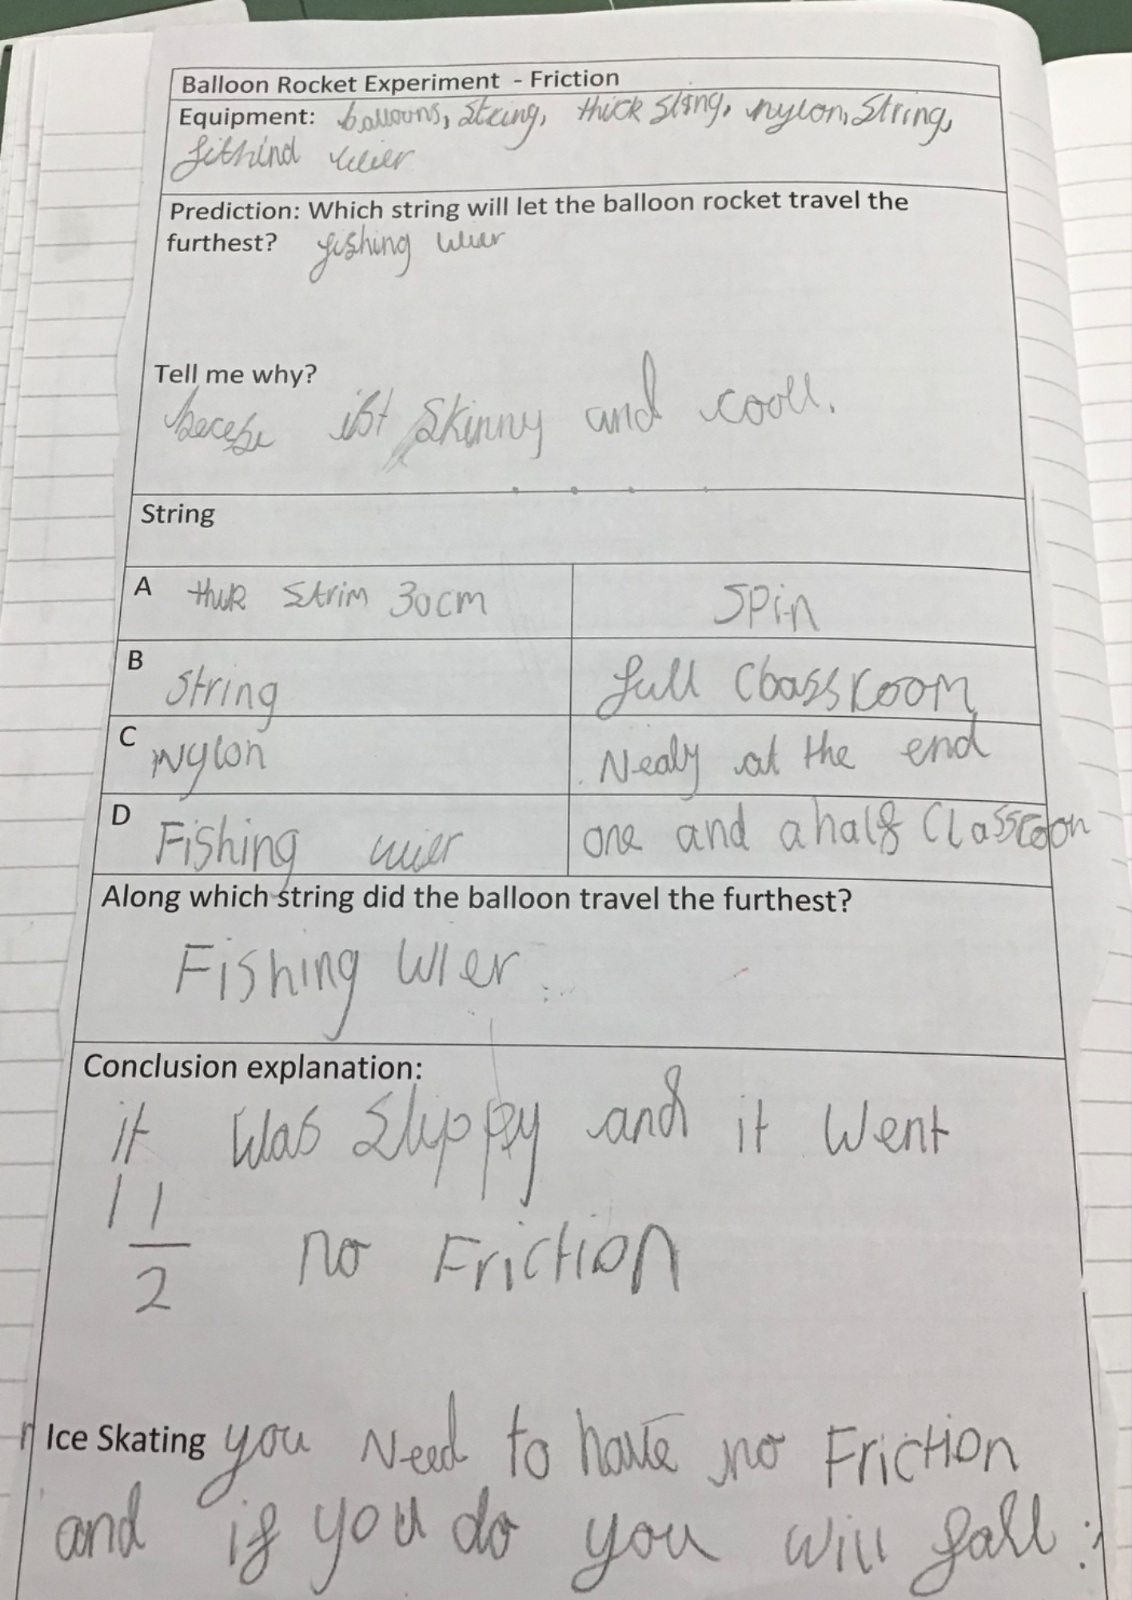 Balloon Rocket Experiment - Friction
Equipment: balloons, string, thick sting, nylon, String,
fithind wier
Prediction: Which string will let the balloon rocket travel the
furthest? fishing wier
Tell me why?
ist skinny and cooll.
String
A thik strim 30cm Spin
B string full Classroom
C Nylon Nealy at the end
D Fishing wier one and a half Classroon
Along which string did the balloon travel the furthest?
Fishing Wier
Conclusion explanation:
it was slippy and it went
1 1/2 no Friction
Ice Skating you Need to have no Friction
and if you do you will fall :